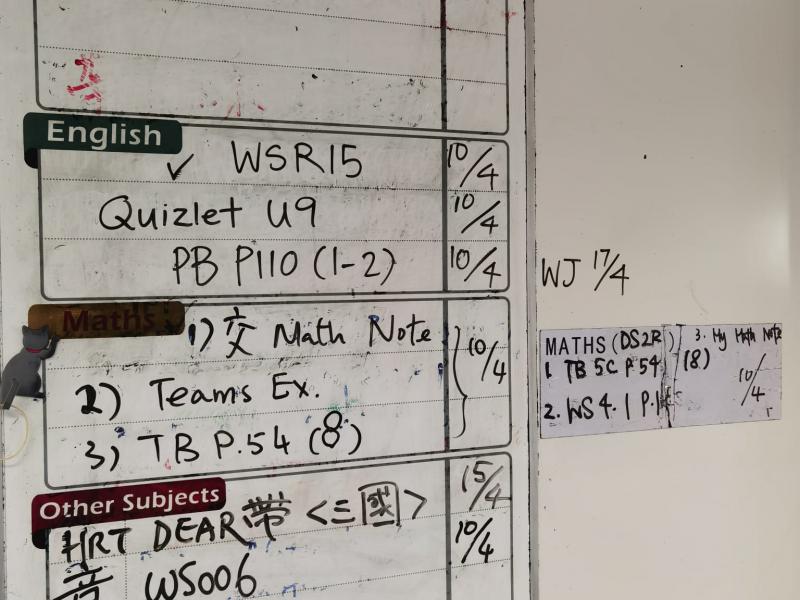 English
✓ WSR15 10/4
Quizlet U9 10/4
PB P110 (1-2) 10/4
WJ 17/4
Maths
1) 交 Math Note
2) Teams Ex. 10/4
3) TB P.54 (8)
MATHS (DS2R)
1. TB 5C P.54 (8)
2. WS 4.1 P.1
3. My Math Note
10/4
Other Subjects
HRT DEAR 帶 <三國> 15/4
音 WS006 10/4